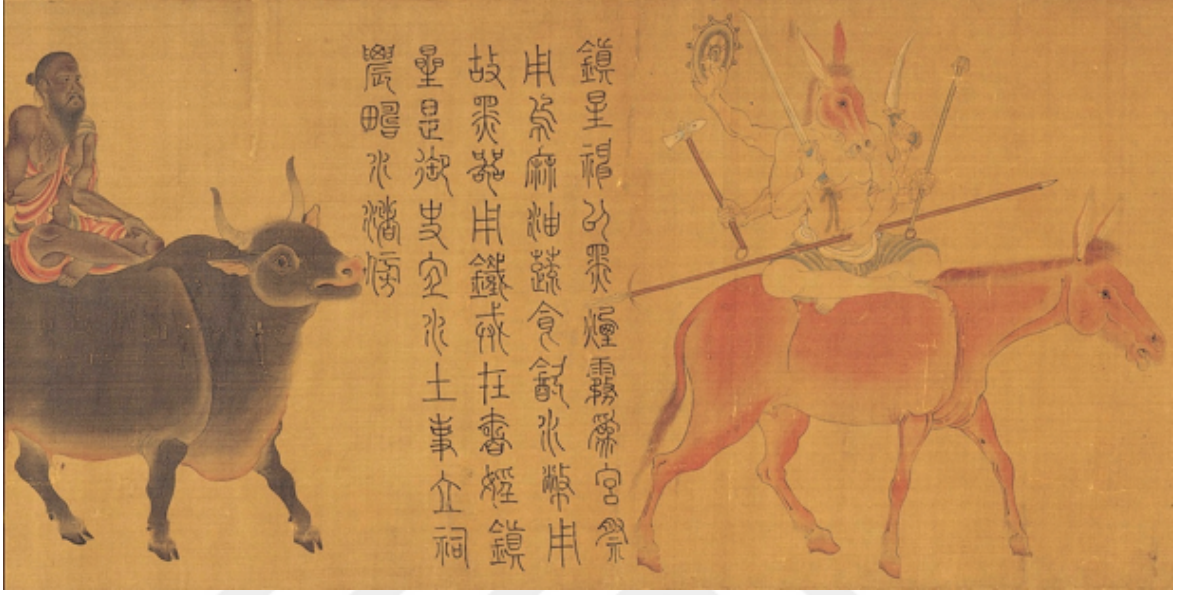 鎮星神以黑煙霧爲宮祭
用烏麻油蔬食飲水幣用
故黑器用鐵戒在書婬鎮
星是御史宜水土事立祠
農水渚傍